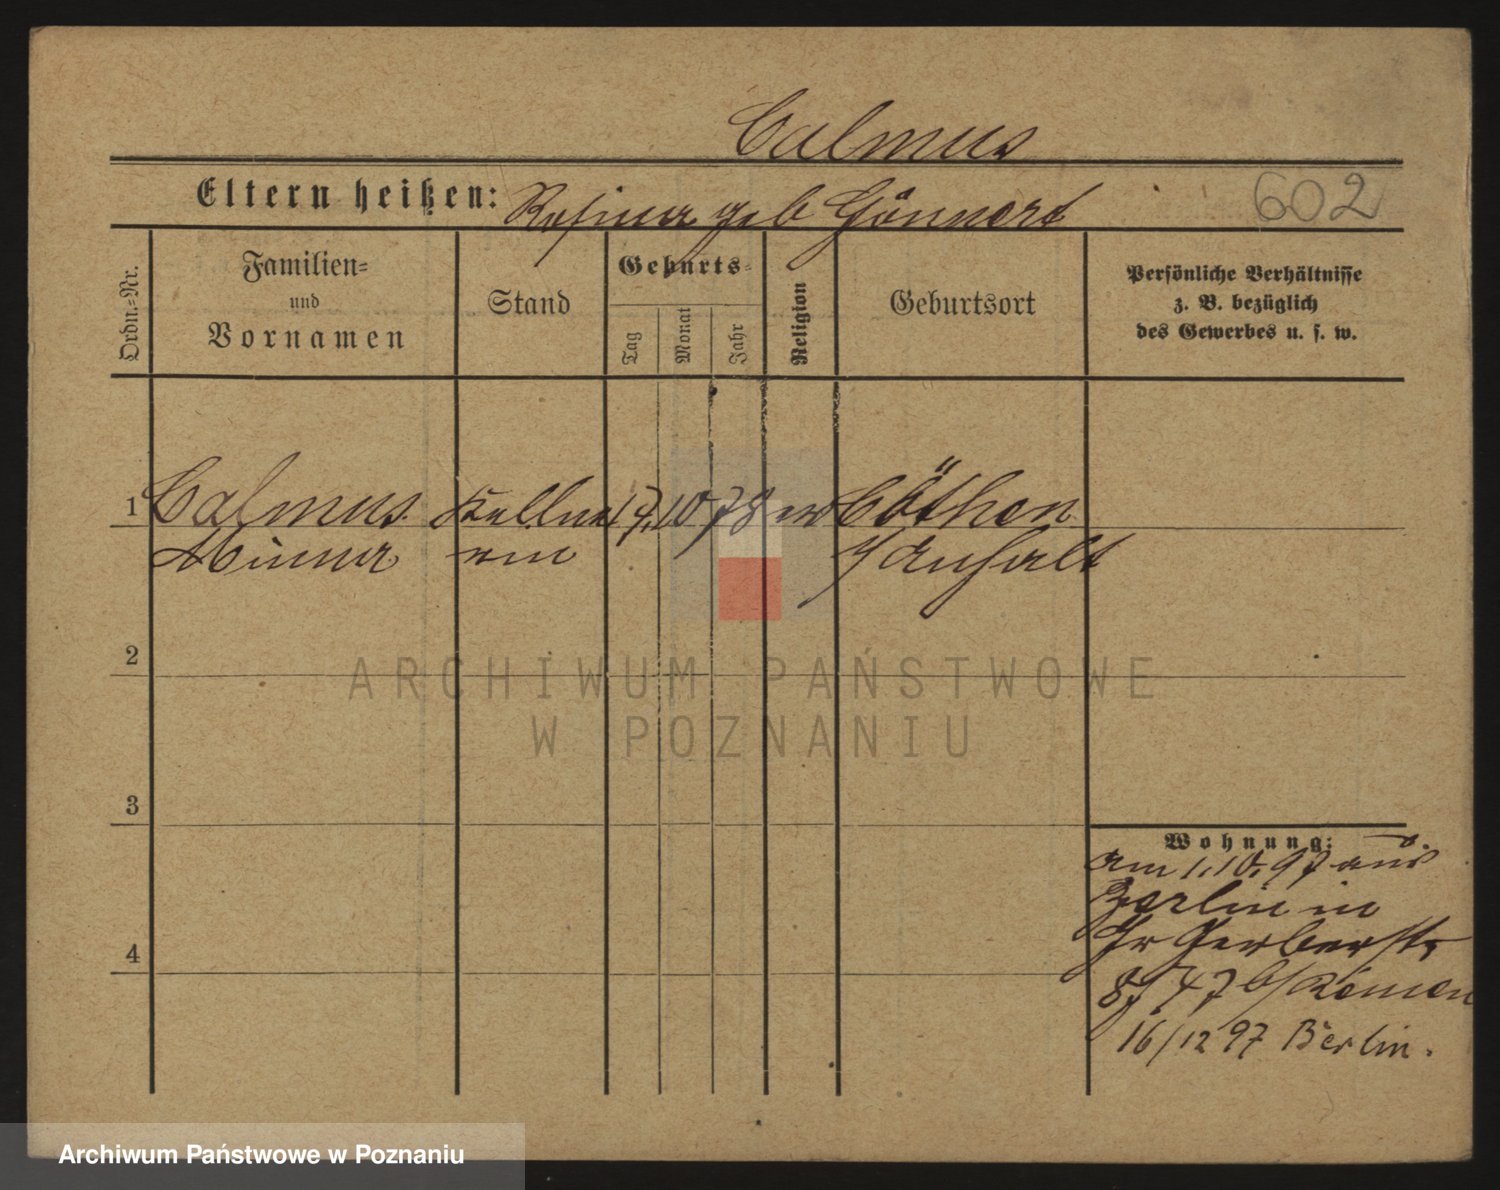 Calmus
Eltern heißen: geb Gönnert 602
Ordn.-Nr.
Familien-
und
Vornamen
Stand
Geburts-
Tag
Monat
Jahr
Religion
Geburtsort
Persönliche Verhältnisse
z. B. bezüglich
des Gewerbes u. s. w.
1 Calmus Kellne 17. 10 78 ev Cöthen
Minna rin i/Anhalt
2
3
4
Wohnung:
am 1.10.97 aus
Berlin in
Gr Gerberstr
47 b/
16/12 97 Berlin.
ARCHIWUM PAŃSTWOWE
W POZNANIU
Archiwum Państwowe w Poznaniu